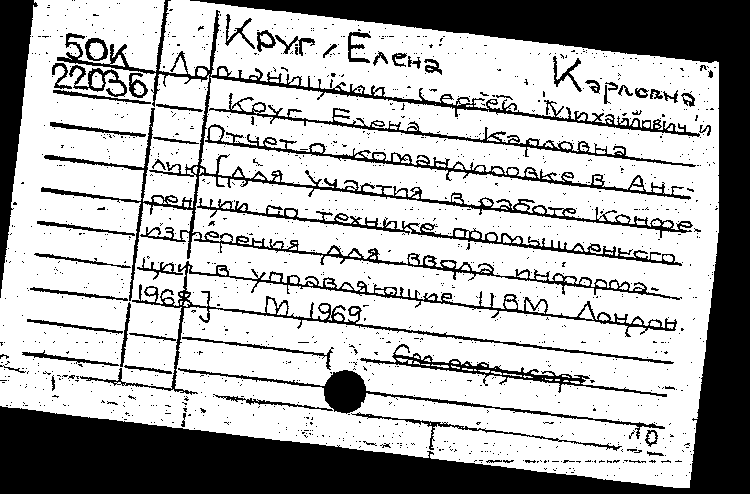 Круг, Елена Карловна
50К
22036
Долганицкий Сергей Михайлович и
Круг, Елена Карловна
Отчет о командировке в Анг-
лию [для участия в работе конфе-
ренции по технике промышленного
измерения для ввода информа-
ции в управляющие ЦВМ. Лондон.
1968]. М., 1969.
См. след. карт.
10